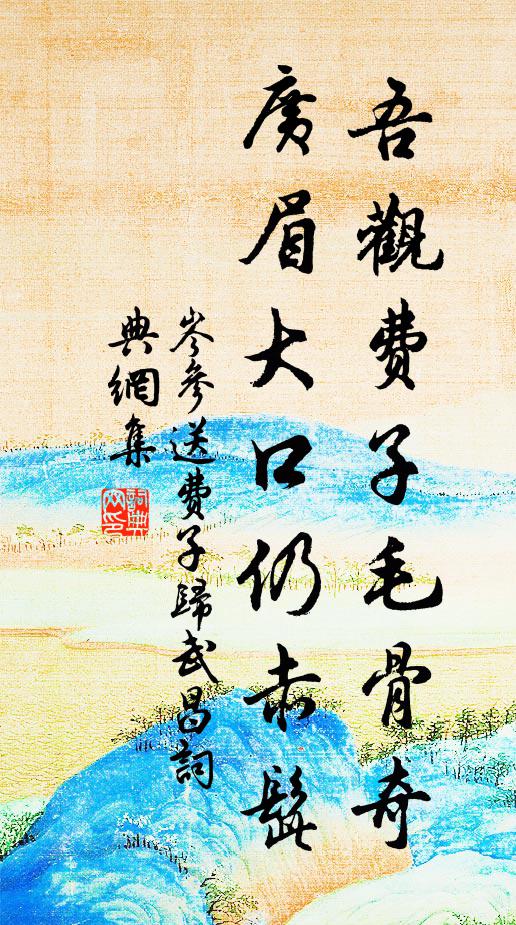 吾觀費子毛骨奇
廣眉大口仍赤髭
岑參送費子歸武昌詞
典網集
詞典網印